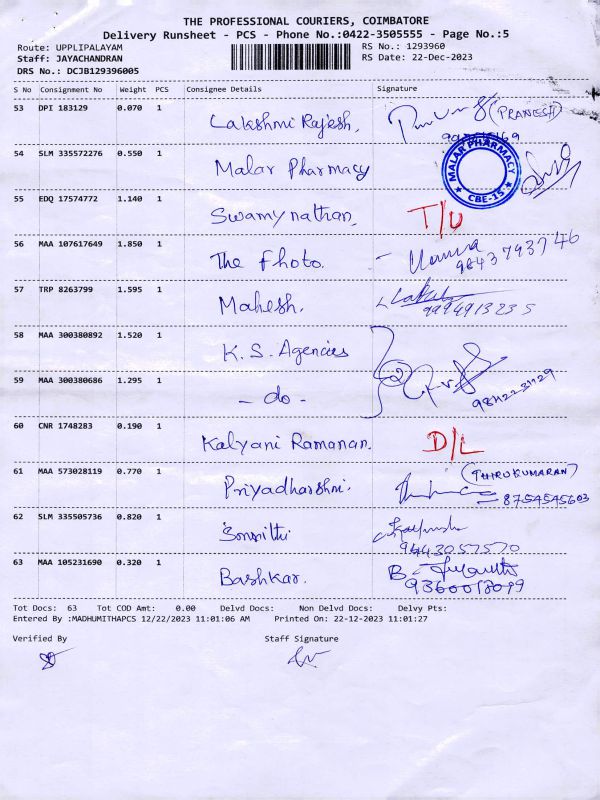 THE PROFESSIONAL COURIERS, COIMBATORE
Delivery Runsheet - PCS - Phone No.:0422-3505555 - Page No.:5
Route: UPPLIPALAYAM RS No.: 1293960
Staff: JAYACHANDRAN RS Date: 22-Dec-2023
DRS No.: DCJB129396005
S No Consignment No Weight PCS Consignee Details Signature
53 DPI 183129 0.070 1 Lakshmi Rajesh. (PRANESH)
54 SLM 335572276 0.550 1 Malar Pharmacy MALAR PHARMACY ★ CBE-15 ★
55 EDQ 17574772 1.140 1 Swamynathan T/U
56 MAA 107617649 1.850 1 The Photo. 9843793746
57 TRP 8263799 1.595 1 Mahesh. 9994913235
58 MAA 300380892 1.520 1 K.S. Agencies
59 MAA 300380686 1.295 1 - do - 2
60 CNR 1748283 0.190 1 Kalyani Ramanan. D/L
61 MAA 573028119 0.770 1 Priyadharshni. (THIRUKUMARAN)
8754545603
62 SLM 335505736 0.820 1
9443057570
63 MAA 105231690 0.320 1 Bashkar. B.
Tot Docs: 63 Tot COD Amt: 0.00 Delvd Docs: Non Delvd Docs: Delvy Pts:
Entered By :MADHUMITHAPCS 12/22/2023 11:01:06 AM Printed On: 22-12-2023 11:01:27
Verified By Staff Signature